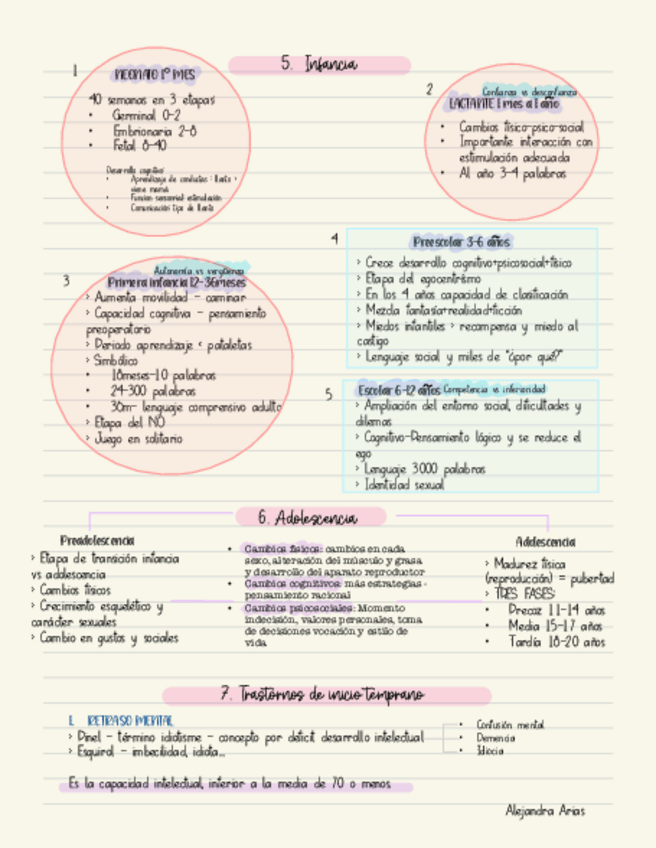 5. Infancia
1
NEONATO 1º MES
40 semanas en 3 etapas
• Germinal 0-2
• Embrionaria 2-8
• Fetal 8-40
Desarrollo cognitivo:
• Aprendizaje de conductas: llanto >
viene mamá
• Función sensorial: estimulación
• Comunicación tipo de llanto
2
Confianza vs desconfianza
LACTANTE 1 mes a 1 año
• Cambios físico-psico-social
• Importante interacción con
estimulación adecuada
• Al año 3-4 palabras
3
Autonomía vs vergüenza
Primera infancia 12-36meses
> Aumenta movilidad - caminar
> Capacidad cognitiva - pensamiento
preoperatorio
> Periodo aprendizaje < pataletas
> Simbólico
• 18meses-10 palabras
• 24-300 palabras
• 30m- lenguaje comprensivo adulto
> Etapa del NO
> Juego en solitario
4
Preescolar 3-6 años
> Crece desarrollo cognitivo+psicosocial+físico
> Etapa del egocentrismo
> En los 4 años capacidad de clasificación
> Mezcla fantasía+realidad+ficción
> Miedos infantiles > recompensa y miedo al
castigo
> Lenguaje social y miles de "¿por qué?"
5
Escolar 6-12 años Competencia vs inferioridad
> Ampliación del entorno social, dificultades y
dilemas
> Cognitivo-Pensamiento lógico y se reduce el
ego
> Lenguaje 3000 palabras
> Identidad sexual
6. Adolescencia
Preadolescencia
> Etapa de transición infancia
vs adolescencia
> Cambios físicos
> Crecimiento esquelético y
carácter sexuales
> Cambio en gustos y sociales
• Cambios físicos: cambios en cada
sexo, alteración del músculo y grasa
y desarrollo del aparato reproductor
• Cambios cognitivos: más estrategias-
pensamiento racional
• Cambios psicosociales: Momento
indecisión, valores personales, toma
de decisiones vocación y estilo de
vida
Adolescencia
> Madurez física
(reproducción) = pubertad
> TRES FASES:
• Precoz 11-14 años
• Media 15-17 años
• Tardía 18-20 años
7. Trastornos de inicio temprano
1. RETRASO MENTAL
> Pinel - término idiotisme - concepto por déficit desarrollo intelectual
> Esquirol - imbecilidad, idiota...
• Confusión mental
• Demencia
• Idiocia
Es la capacidad intelectual, inferior a la media de 70 o menos
Alejandra Arias